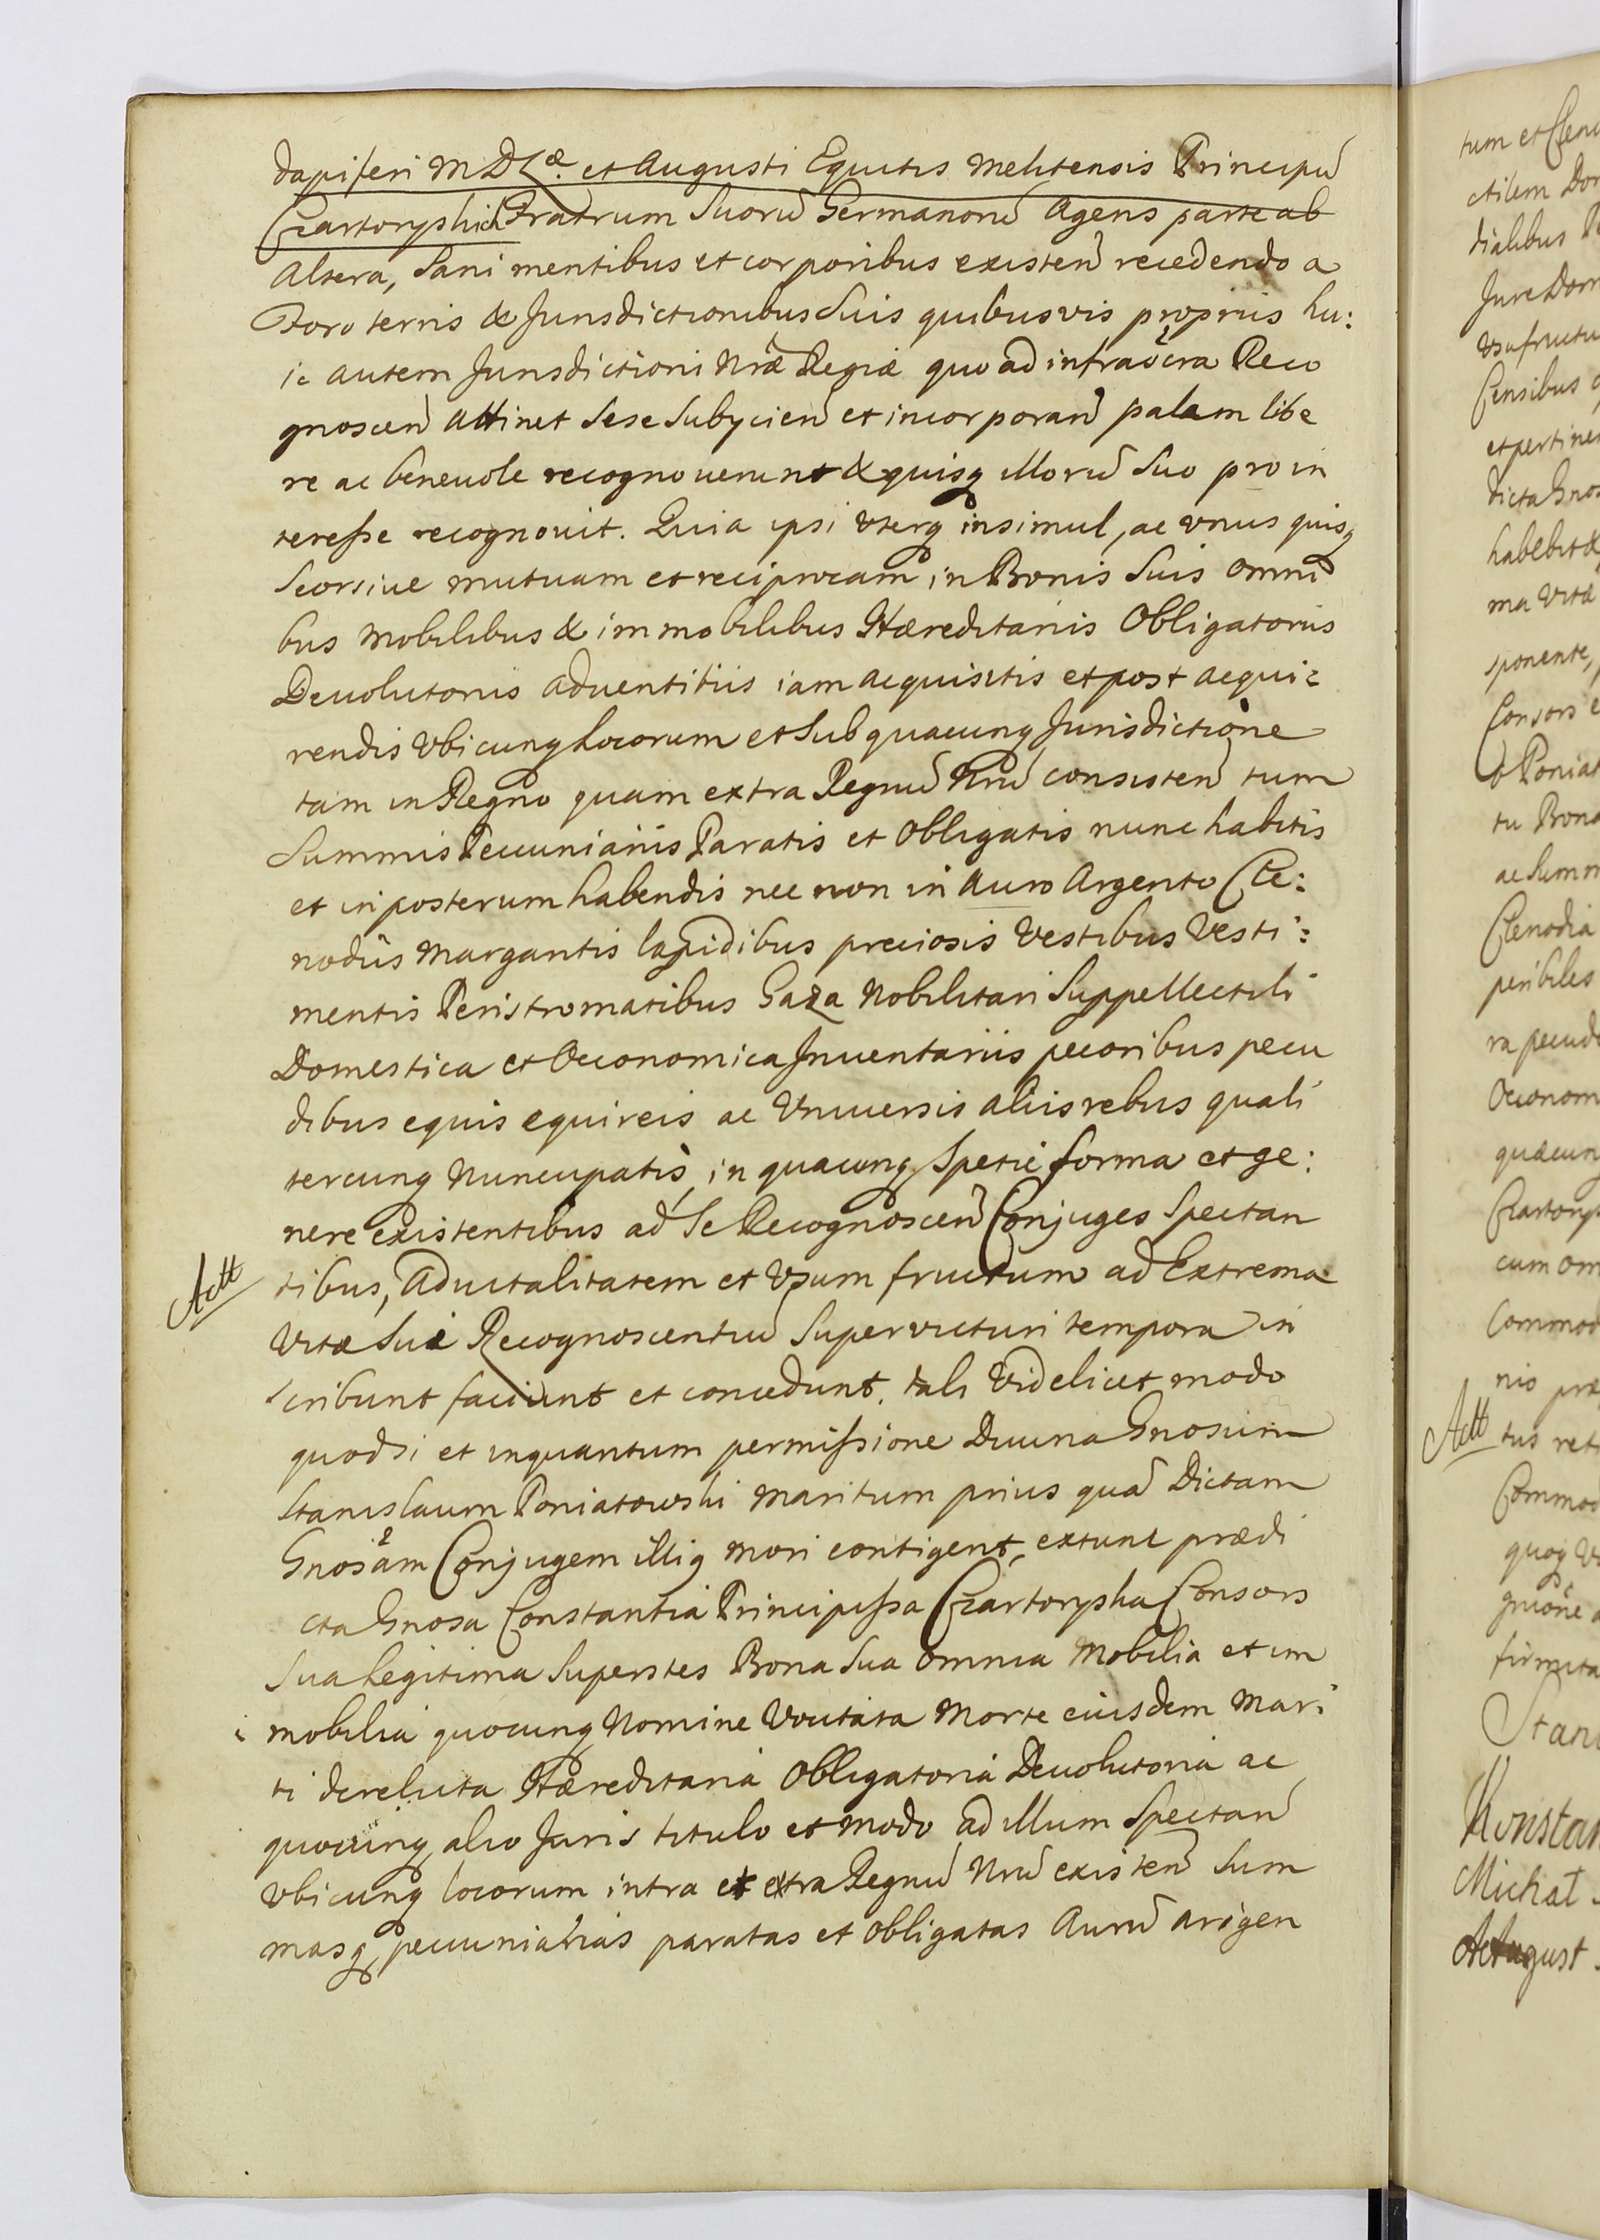 dapiferi M D Læ. et Augusti Equitis Melitensis Principũ
Czartoryskich Fratrum Suorũ Germanorũ Agens parte ab
Altera, Sani mentibus et corporibus existeñ recedendo a
Foro terris & Jurisdictionibus Suis quibusvis proprijs hu:
ic autem Jurisdictioni Nræ Regiæ quo ad infrascra Reco
gnosceñ attinet Sese Subycieñ et incorporañ palam libe
re ac beneuole recognouerunt & quisq illorũ Suo pro in
teresse recognouit. Quia ipsi vterq insimul, ac vnus quisq
Seorsiue mutuam et reciprocam in Bonis Suis omni
bus Mobilibus & immobilibus Hæreditariis Obligatoriis
Deuolutoriis aduentitiis iam acquisitis et post acqui:
rendis vbicunq locorum et Sub quacunq Jurisdictione
tam in Regno quam extra Regnũ Nrũ consisteñ tum
Summis Pecuniariis Paratis et Obligatis nunc habitis
et in posterum habendis nec non in Auro Argento Cle:
nodiis Margaritis lapidibus preciosis Vestibus Vesti:
mentis Peristromatibus Gaza Nobilitari Suppellectili
Domestica et Oeconomica Inuentariis pecoribus pecu
dibus equis equireis ac Vniuersis aliis rebus quali
tercunq Nuncupatis, in quacunq Spetie forma et ge:
nere existentibus ad Se Recognosceñ Conjuges Spectan
Actt
tibus, Aduitalitatem et Vsum fructum ad Extrema
Vitæ Suæ Recognoscentiũ Superuicturi tempora in
scribunt faciunt et concedunt. tali Videlicet modo
quod Si et inquantum permissione Diuina Gnosum
Stanislaum Poniatowski Maritum prius quã Dictam
Gnosam Conjugem illiq mori contigerit, extunc prædi
cta Gnosa Constantia Principissa Czartoryska Consors
Sua Legitima Superstes Bona Sua omnia Mobilia et im
mobilia quocunq Nomine Vocitata Morte eiusdem Mari
ti derelicta Hæreditaria Obligatoria Deuolutoria ac
quocunq alio Juris titulo et modo ad illum Spectañ
vbicunq locorum intra et extra Regnũ Nrũ existeñ Sum
masq pecuniarias paratas et obligatas Aurũ argen
tum et Cleno
ctilem Dom
dialibus
Jure Dom
Vsufructu
Censibus
et pertinen
dicta Gnos
habebit &
ma Vitæ
sponente,
Consors
Poniat
tu Bona
ac Summ
Clenodia
peribiles
ra pecud
Oeconom
quæcun
Czartorys
cum om
Commod
nis præ
Actt
tus reti
Commod
quoq
gnione
firmita
Stani
Konstan
Michał
August